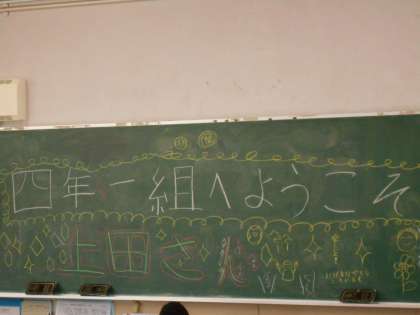 四年一組へようこそ
生田さん